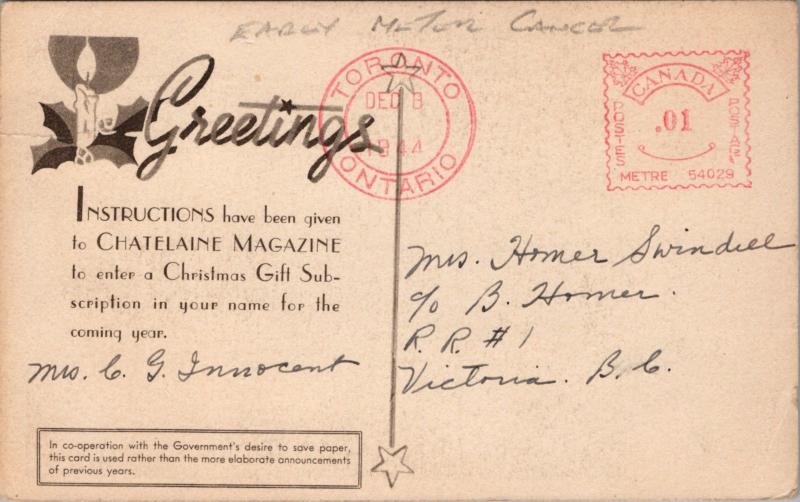 EARLY METER CANCEL
Greetings
TORONTO
DEC 8
1944
ONTARIO
CANADA
POSTES
.01
POSTAGE
METRE 54029
INSTRUCTIONS have been given
to CHATELAINE MAGAZINE
to enter a Christmas Gift Sub-
scription in your name for the
coming year.
Mrs. C. G. Innocent
Mrs. Homer Swindell
c/o B. Homer.
R. R. #1
Victoria. B. C.
In co-operation with the Government's desire to save paper,
this card is used rather than the more elaborate announcements
of previous years.